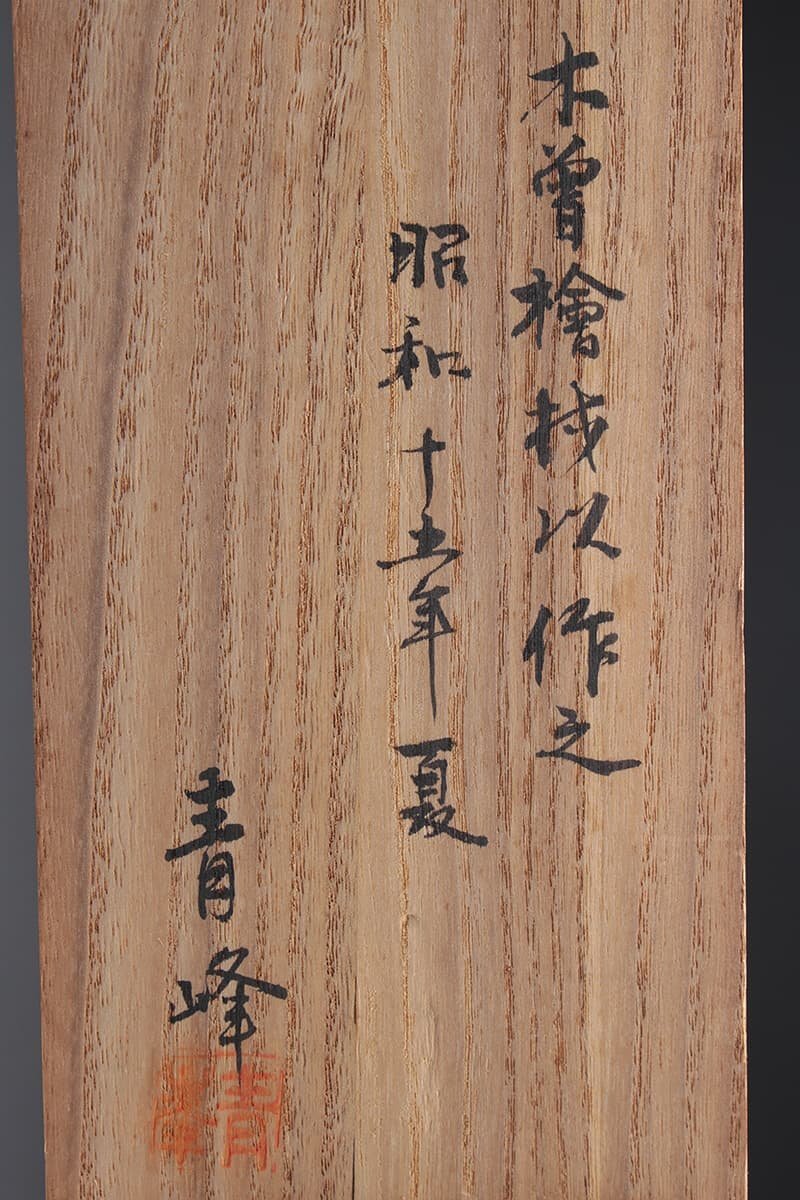 木曽檜材以作之
昭和十五年夏
青峰
青峯